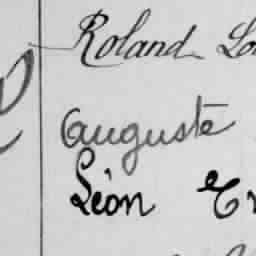 Roland
Auguste
Léon